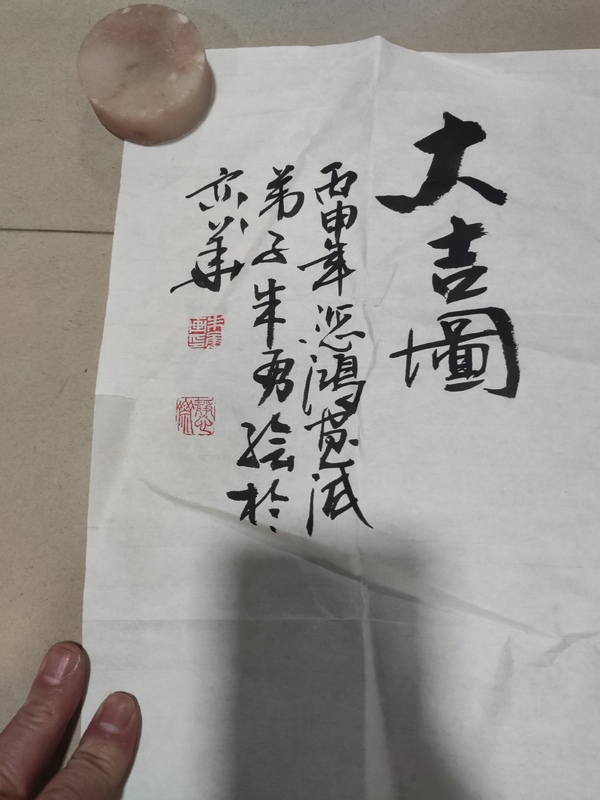 大吉圖
丙申年悲鴻畫派
弟子朱勇繪於
京華